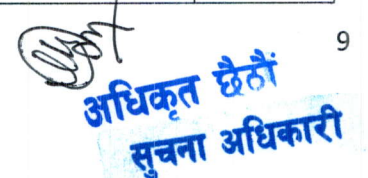 9
अधिकृत छैठौं
सुचना अधिकारी